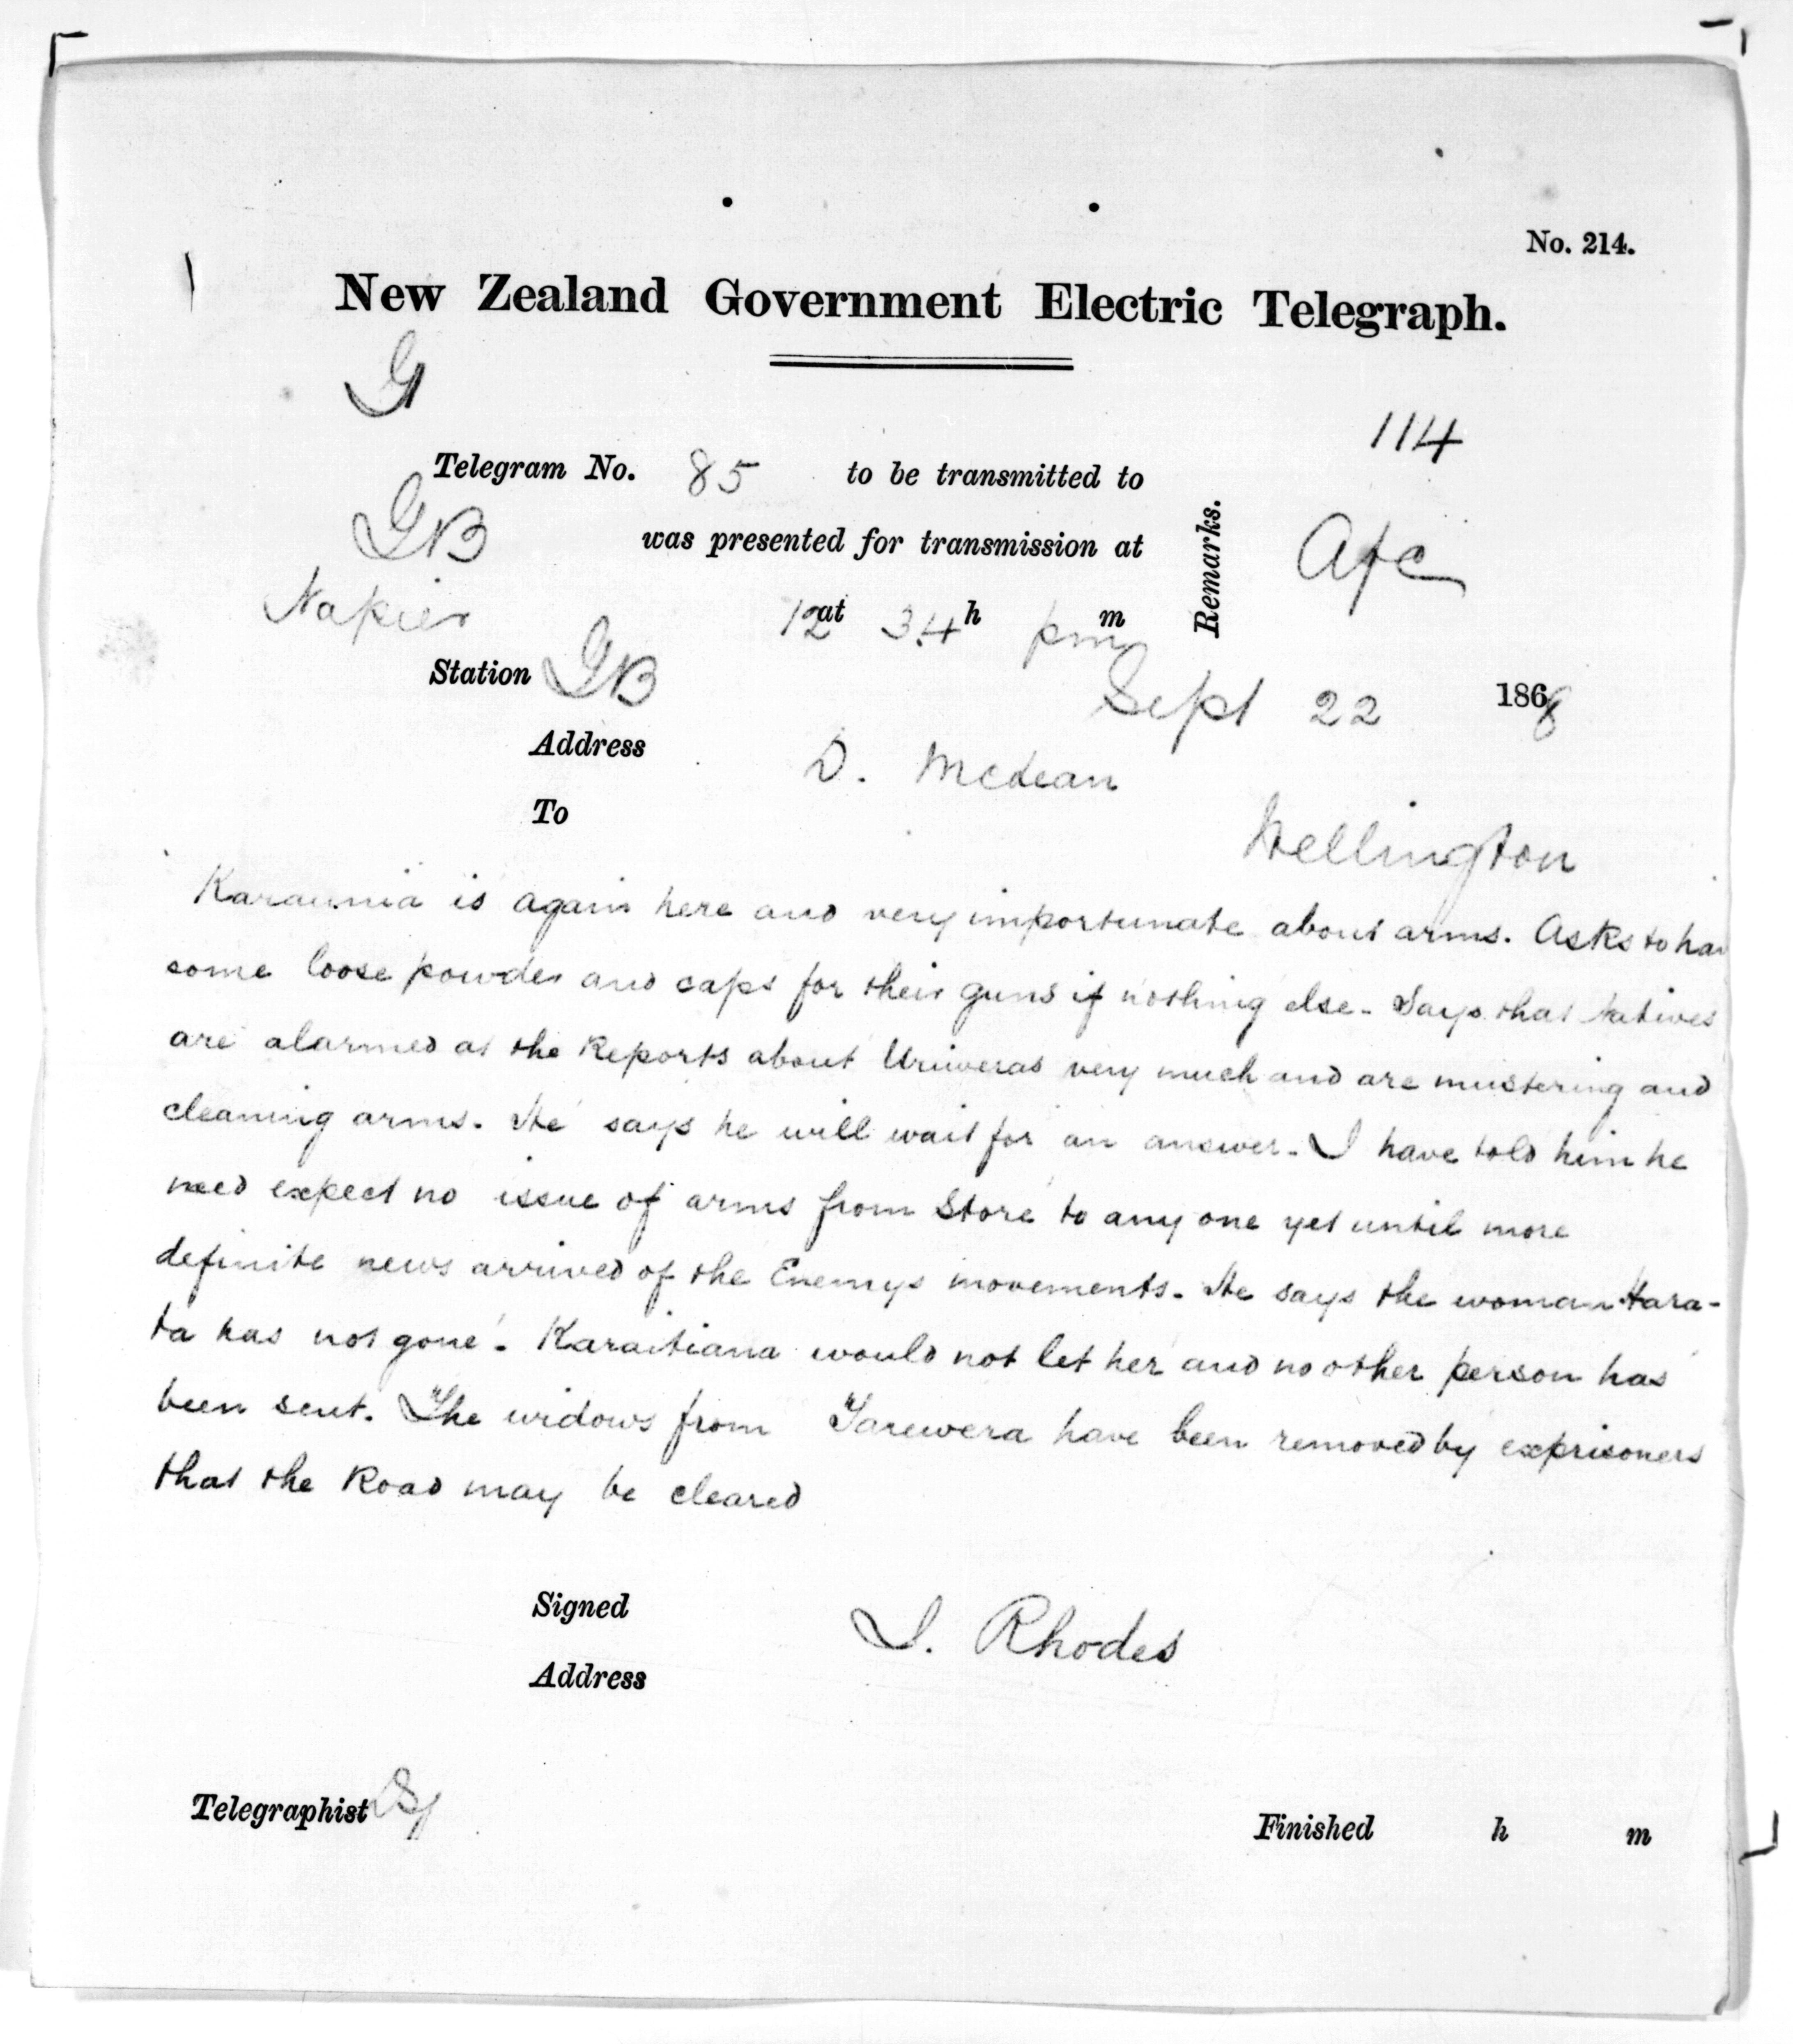 No. 214.
New Zealand Government Electric Telegraph.
G
114
Telegram No. 85 to be transmitted to
GB
was presented for transmission at
Remarks.
Napier
12 at 34 h pm m
Station GB
Sept 22 1868
Address
D. McLean
To
Wellington
Karauria is again here and very importunate about arms. Asks to hav
some loose powder and caps for their guns if nothing else - Says that Natives
are alarmed at the Reports about Uriweras very much and are mustering and
cleaning arms. He says he will wait for an answer - I have told him he
need expect no issue of arms from Store to any one yet until more
definite news arrived of the Enemys movements. He says the woman Hara-
ta has not gone. Karaitiana would not let her and no other person has
been sent. The widows from Tarewera have been removed by exprisoners
that the Road may be cleared
Signed
J. Rhodes
Address
Telegraphist
Finished h m